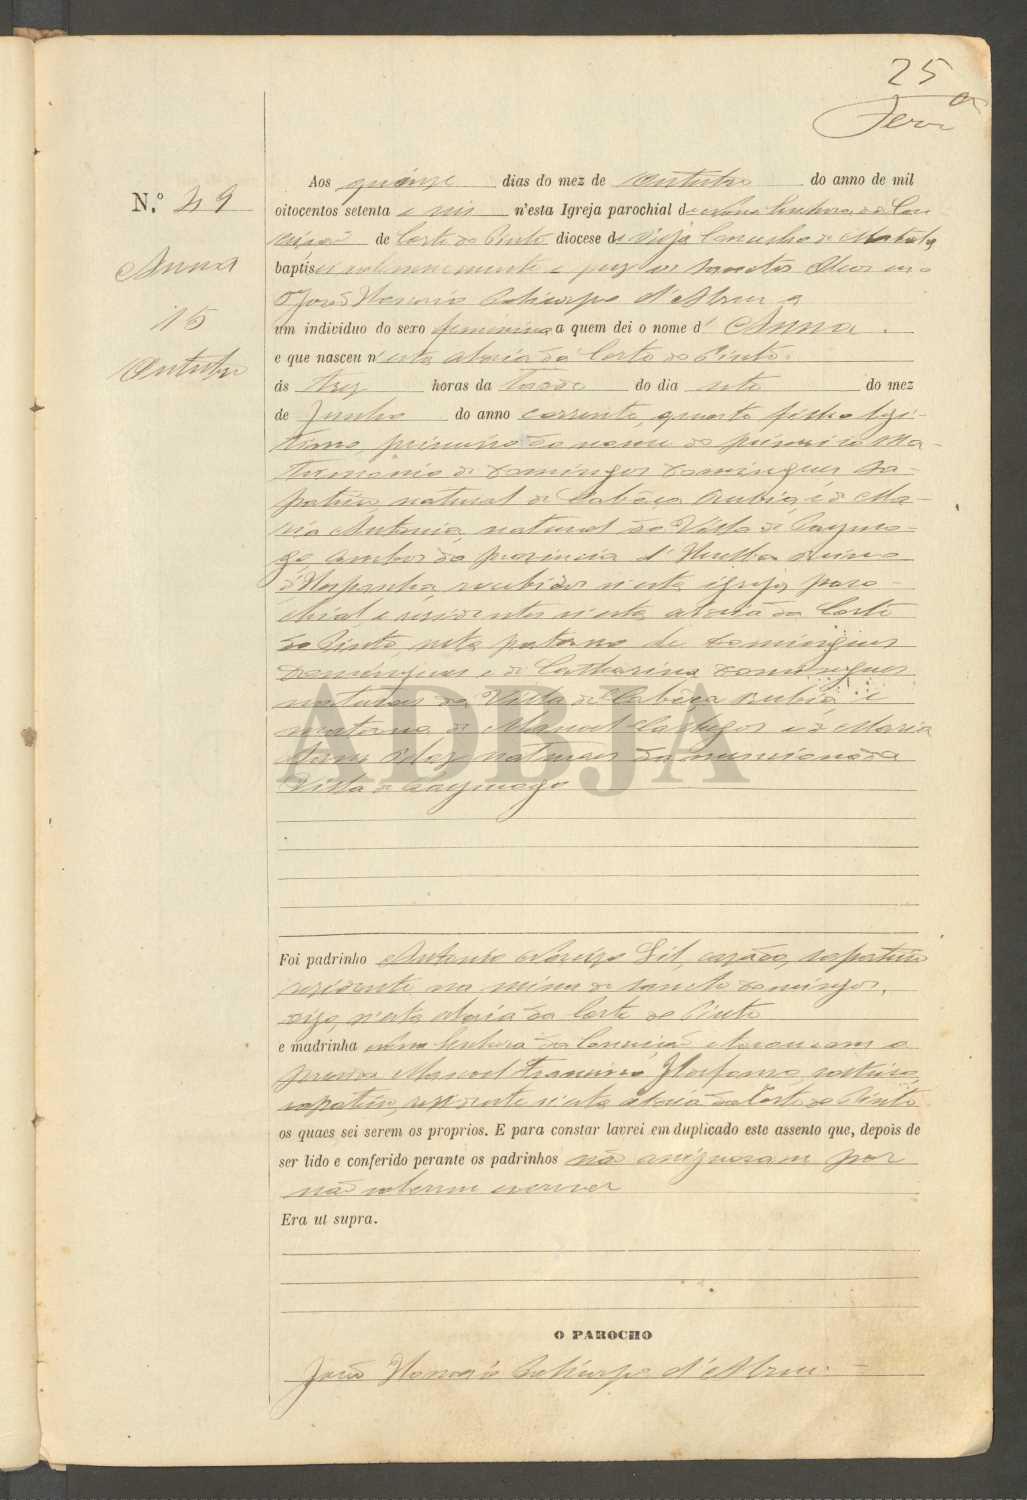 25
N.º 49
Anna
15
Outubro
Aos quinze dias do mez de Outubro do anno de mil
oitocentos setenta e seis n'esta Igreja parochial de Nossa Senhora da Con
ceição de Corte do Pinto diocese de Beja Concelho de Mertola
baptisei solemnemente e puz os Sanctos Oleos eu o
P João Honorio Policarpo d'Abreu a
um individuo do sexo feminino a quem dei o nome d' Anna.
e que nasceu n'esta aldeia da Corte do Pinto.
ás trez horas da tarde do dia sete do mez
de Junho do anno corrente, quarto filho legi-
timo, primeiro do nome do primeiro Ma-
trimonio de Domingos Domingues sa-
pateiro, natural de Cabeça Rubia, e de Ma-
ria Antonia, natural da Villa de Paymo-
go ambos da provincia d'Huelba reino
d'Hespanha, recebidos n'esta igreja paro-
chial e residentes n'esta aldeia da Corte
do Pinto, neta paterna de Domingues
Domingues e de Catharina Domingues
naturaes da Villa de Cabeça Rubia, e
materna de Manoel e de Maria
naturaes da mencionada
Villa de Paymogo
ADBJA
Foi padrinho Antonio Gil, casado, sapateiro
residente na mina de Sancto Domingos,
digo, n'esta aldeia da Corte do Pinto
e madrinha Nossa Senhora da Conceição e tocou com a
prenda Manoel Francisco, solteiro,
sapateiro, residente n'esta aldeia da Corte do Pinto
os quaes sei serem os proprios. E para constar lavrei em duplicado este assento que, depois de
ser lido e conferido perante os padrinhos não assignaram por
não saberem escrever
Era ut supra.
O PAROCHO
João Honorio Policarpo d'Abreu